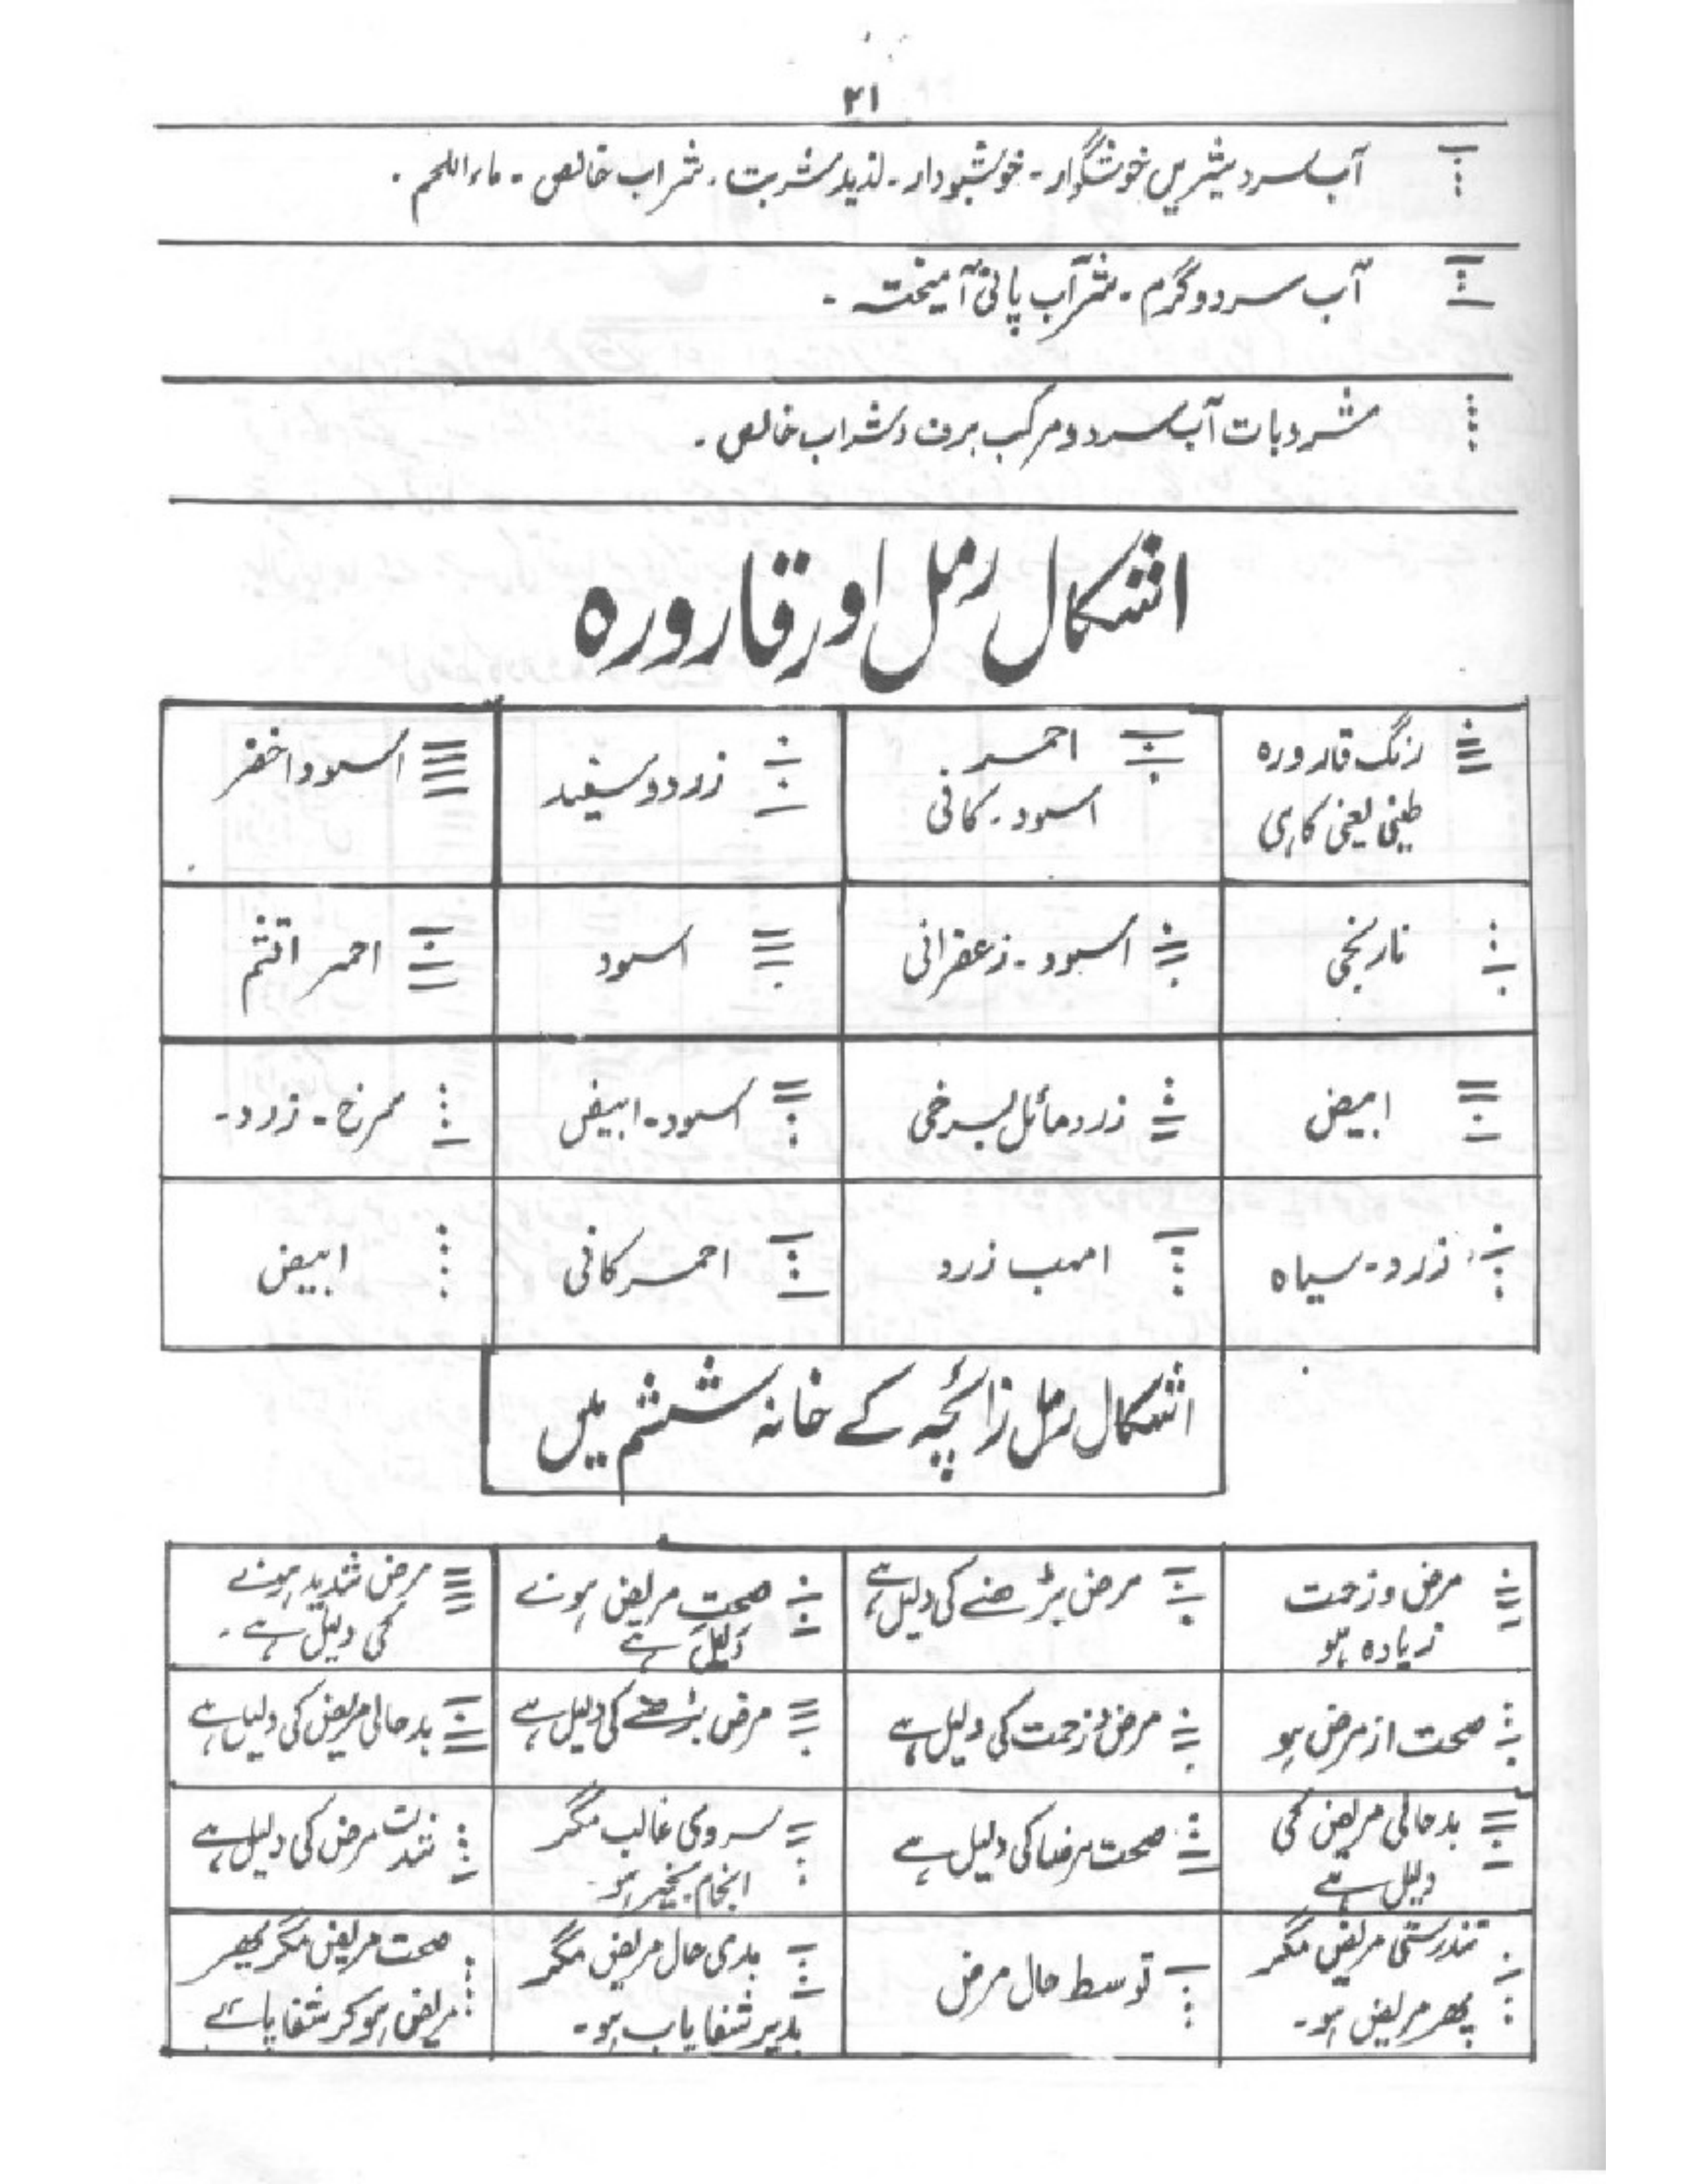 ۲۱
آب سرد شیریں خوشگوار - خوشبودار - لذیذ شربت . شراب خالص - ماء اللحم .
آب سرد و گرم - شراب پانی آمیختہ -
مشروبات آب سرد و مرکب برف و شراب خالص .
اشکال رمل اور قارورہ
رنگ قارورہ
طینی یعنی کاہی
احمر
اسود - کافی
زرد و سفید
اسود و اخضر
نارنجی
اسود - زعفرانی
اسود
احمر
ابیض
زرد مائل بسرخی
اسود - ابیض
سرخ - زرد -
زرد - سیاہ
زرد
احمر کافی
ابیض
اشکال رمل زائچہ کے خانہ ششم میں
مرض و زحمت
زیادہ ہو
مرض بڑھنے کی دلیل ہے
صحت مریض ہونے
دلیل ہے
مرض شدید ہونے
کی دلیل ہے .
صحت از مرض ہو
مرض و زحمت کی دلیل ہے
مرض بڑھنے کی دلیل ہے
بدحالی مریض کی دلیل ہے
بدحالی مریض کی
دلیل ہے
صحت مرض کی دلیل ہے
سردی غالب مگر
انجام بخیر ہو -
شدت مرض کی دلیل ہے
تندرستی مریض مگر
پھر مریض ہو -
توسط حال مرض
بدی حال مریض مگر
بدیر شفا یاب ہو -
صحت مریض مگر پھر
مریض ہو کر شفا پائے